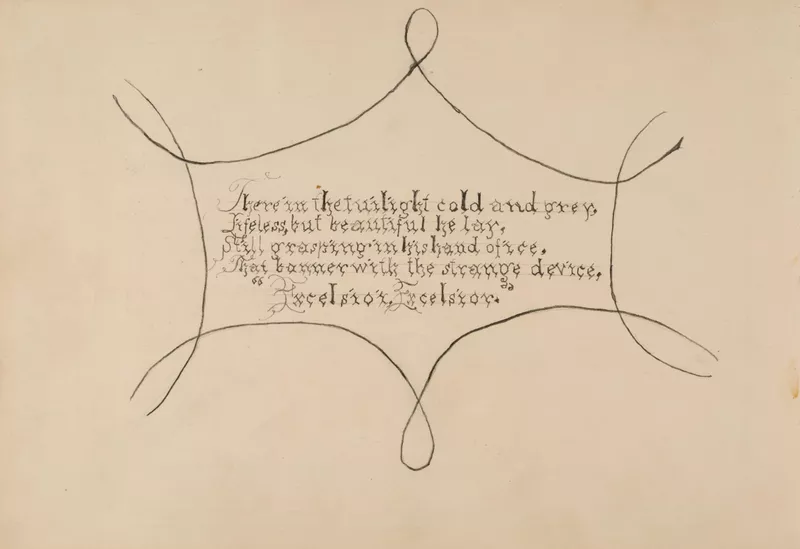 There in the twilight cold and grey,
Lifeless, but beautiful he lay,
Still grasping in his hand of ice,
That banner with the strange device,
"Excelsior, Excelsior."